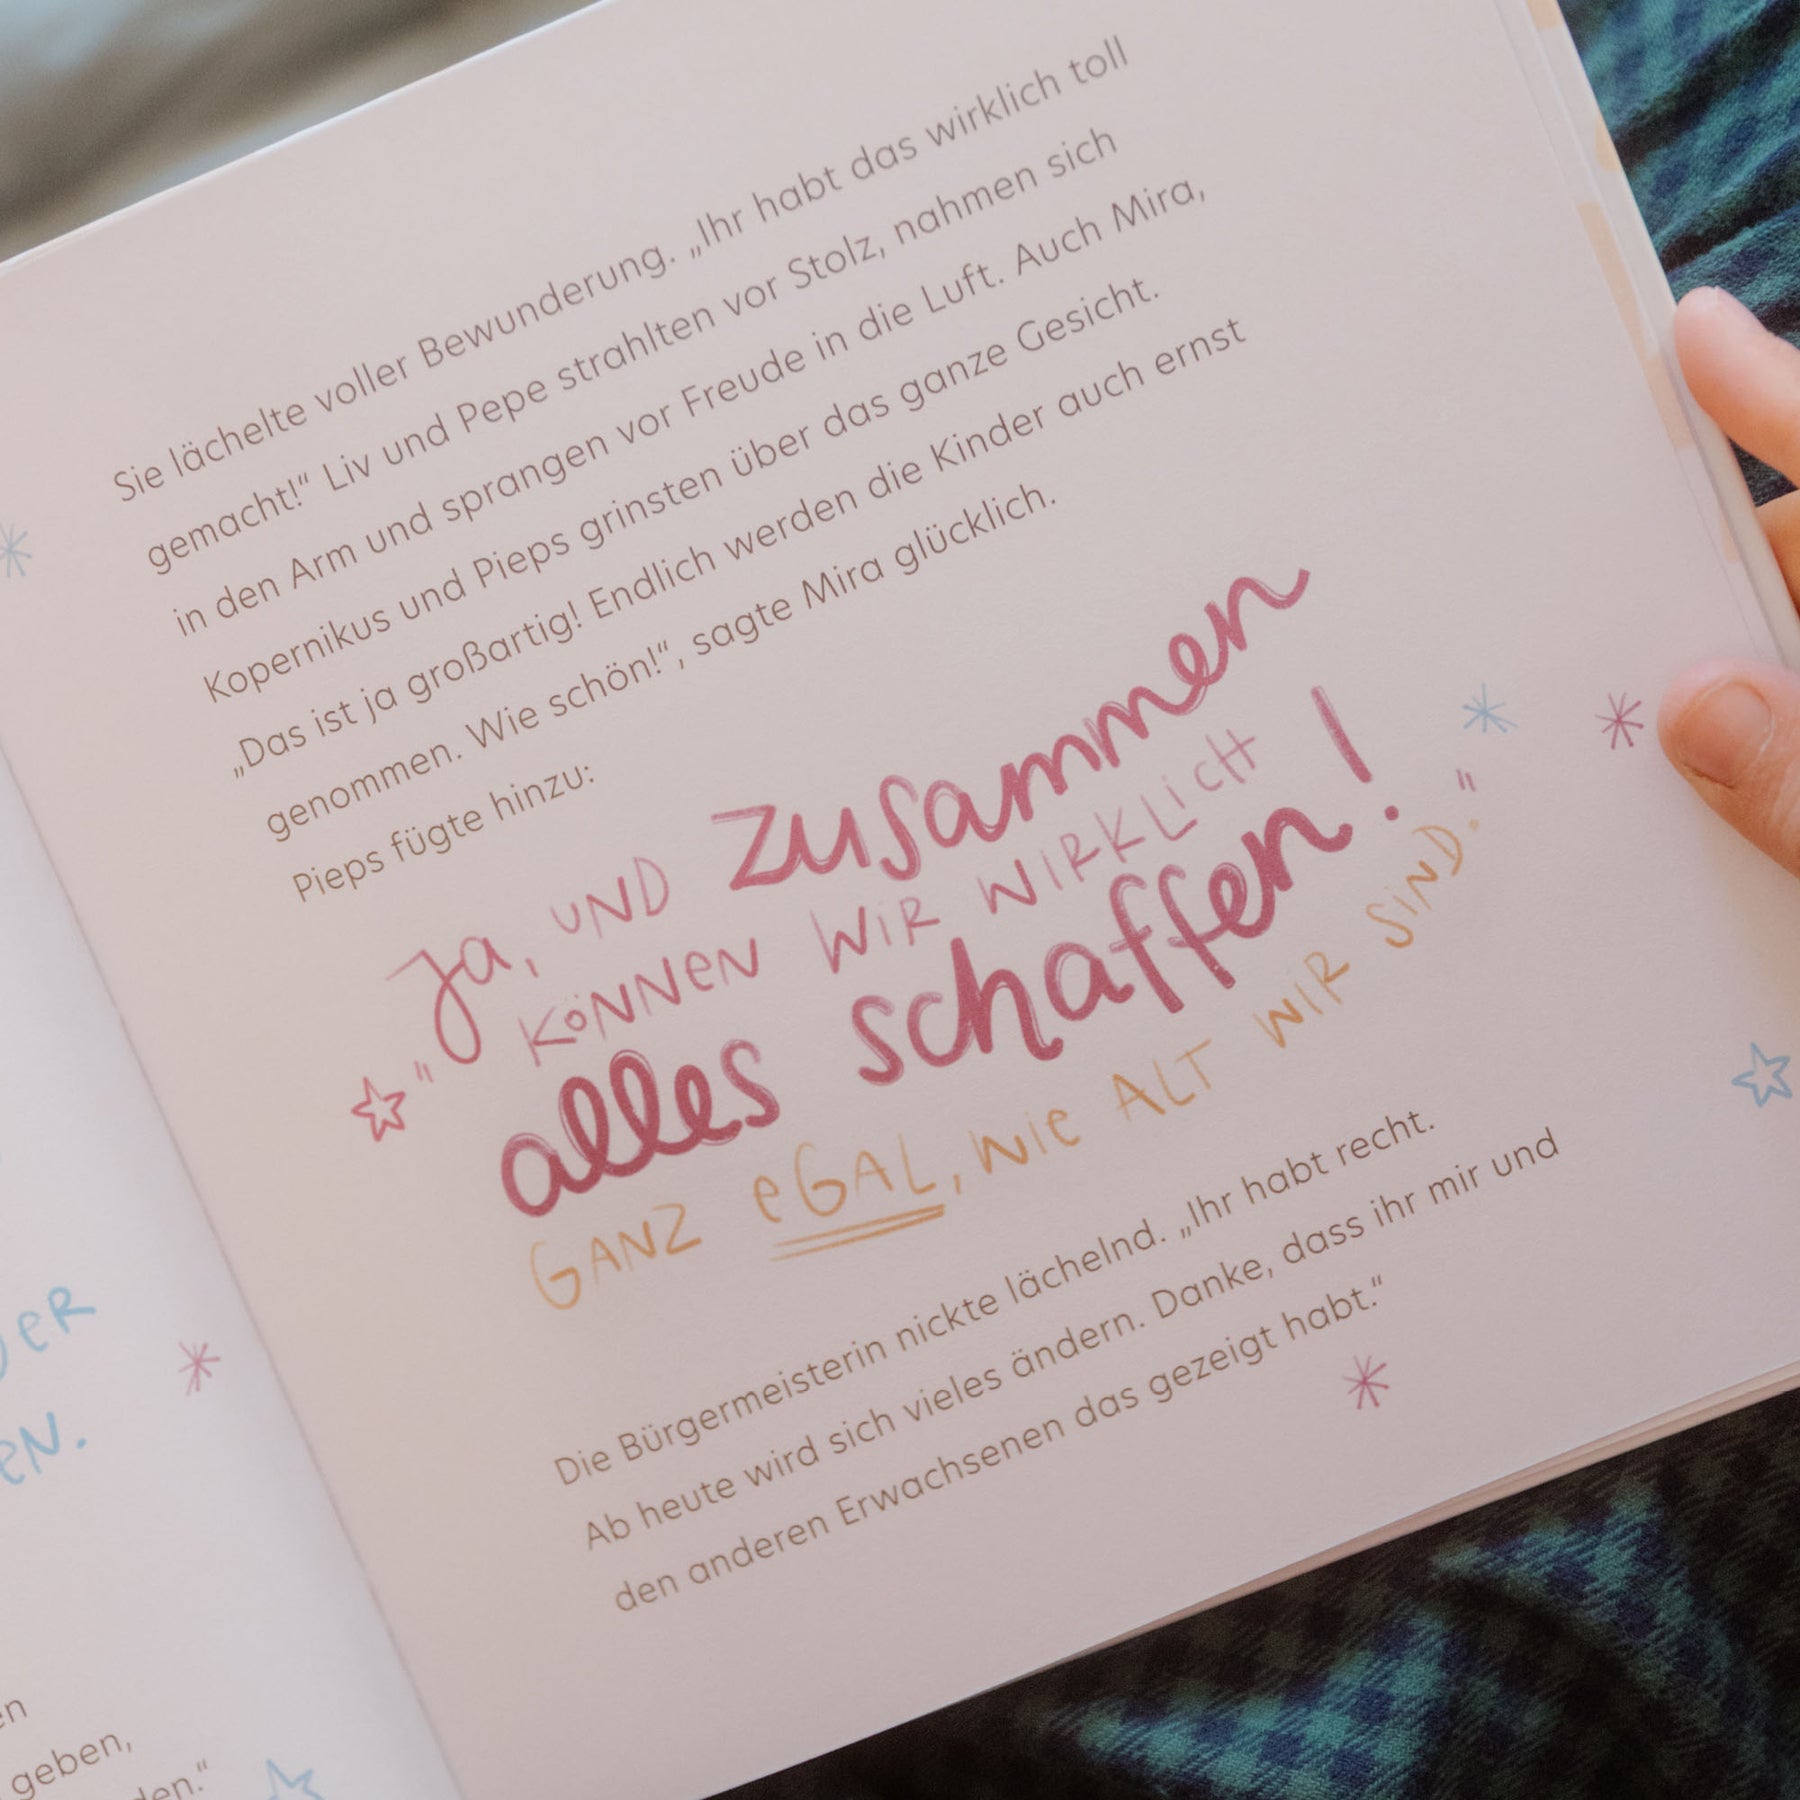 Sie lächelte voller Bewunderung. „Ihr habt das wirklich toll
gemacht!“ Liv und Pepe strahlten vor Stolz, nahmen sich
in den Arm und sprangen vor Freude in die Luft. Auch Mira,
Kopernikus und Pieps grinsten über das ganze Gesicht.
„Das ist ja großartig! Endlich werden die Kinder auch ernst
genommen. Wie schön!“, sagte Mira glücklich.
Pieps fügte hinzu:
„Ja, UND zusammen
KÖNNEN WIR WIRKLICH
alles schaffen!
GANZ EGAL, WIE ALT WIR SIND.“
Die Bürgermeisterin nickte lächelnd. „Ihr habt recht.
Ab heute wird sich vieles ändern. Danke, dass ihr mir und
den anderen Erwachsenen das gezeigt habt.“
geben,